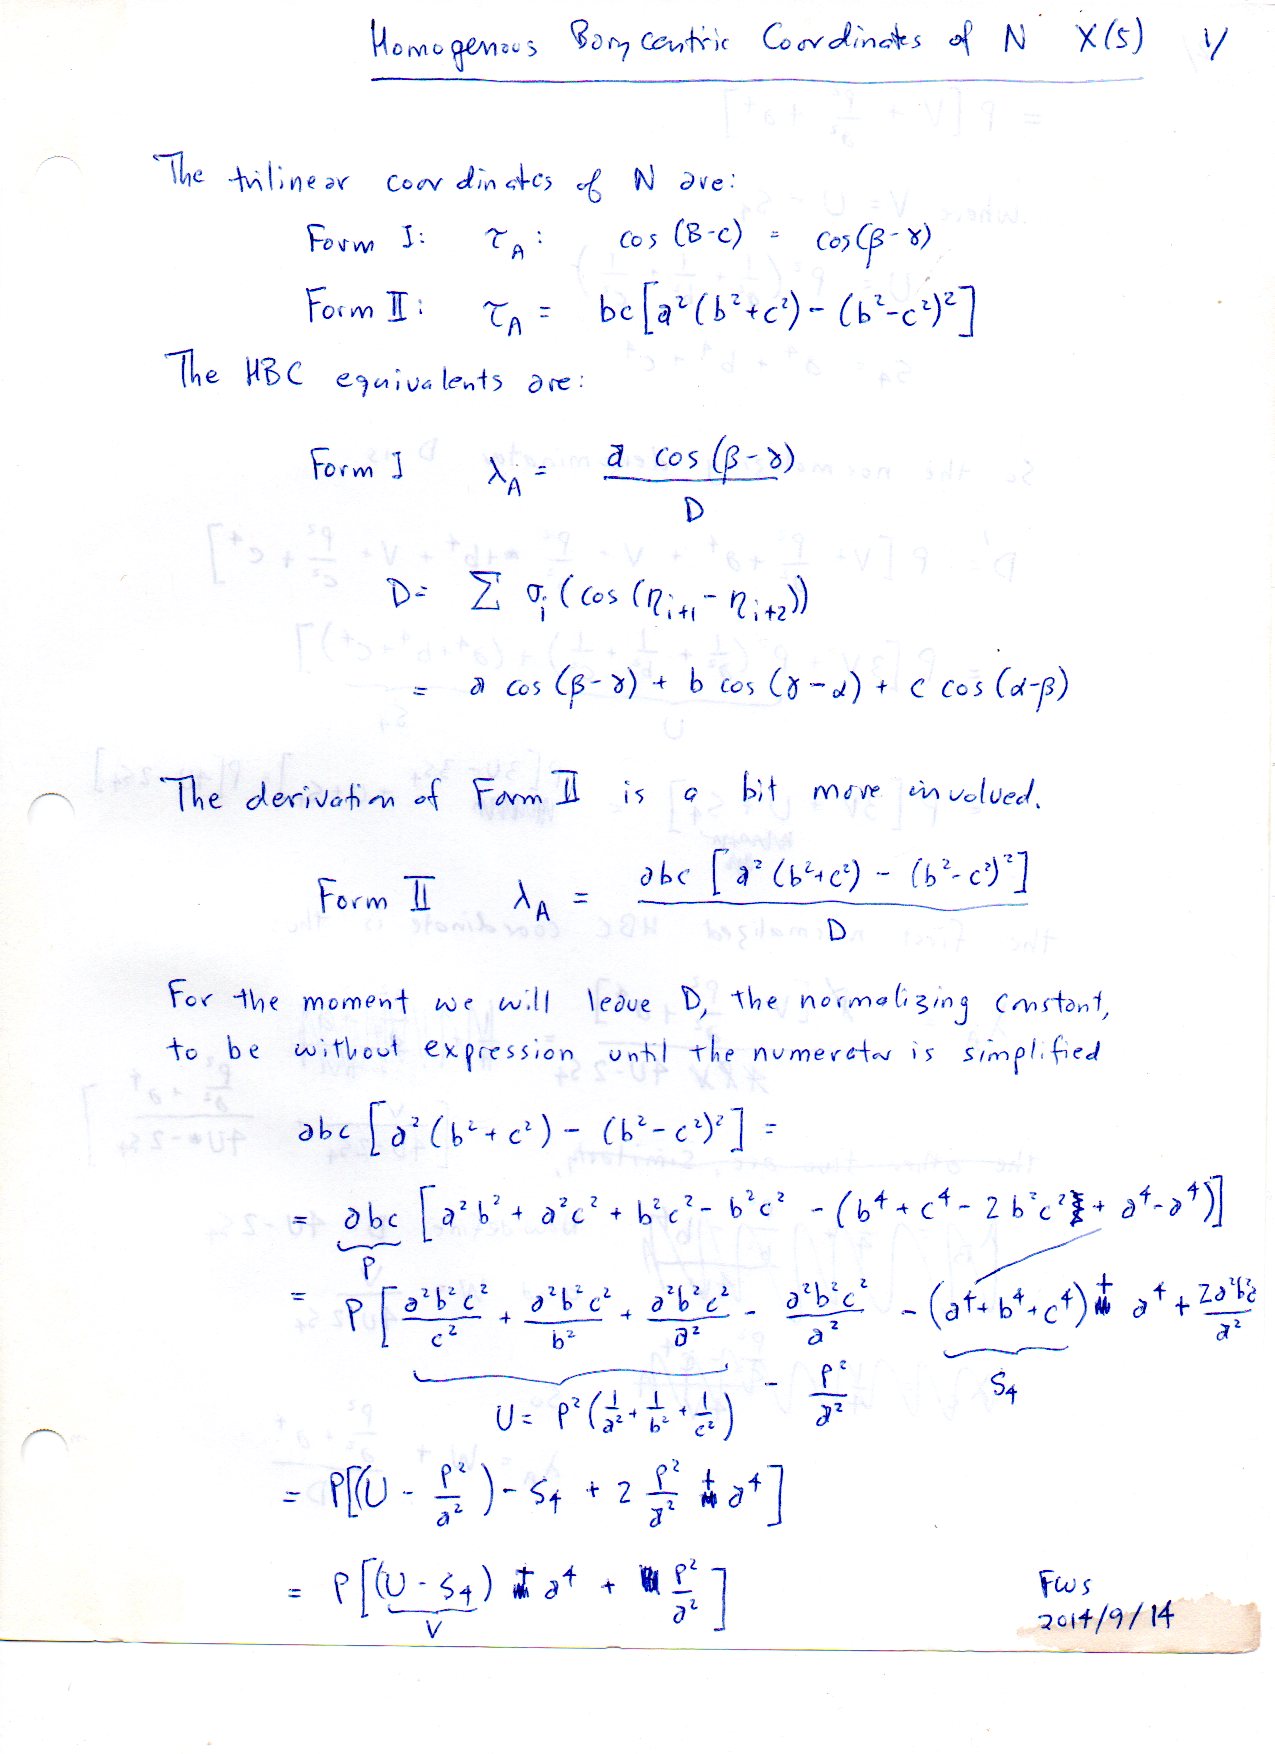 Homogenous Barycentric Coordinates of N X(5) 1/
The trilinear coordinates of N are:
Form I: τ_A : cos (B-C) = cos(β-γ)
Form II: τ_A = bc[a²(b²+c²) - (b²-c²)²]
The HBC equivalents are:
Form I λ_A = a cos (β-γ) / D
D = Σ σ_i (cos (η_{i+1} - η_{i+2}))
= a cos (β-γ) + b cos (γ-α) + c cos (α-β)
The derivation of Form II is a bit more involved.
Form II λ_A = abc [a² (b²+c²) - (b²-c²)²] / D
For the moment we will leave D, the normalizing constant,
to be without expression until the numerator is simplified
abc [a² (b²+c²) - (b²-c²)²] =
= abc [a²b² + a²c² + b²c² - b²c² - (b⁴ + c⁴ - 2b²c² + a⁴-a⁴)]
P
= P [a²b²c²/c² + a²b²c²/b² + a²b²c²/a² - a²b²c²/a² - (a⁴+b⁴+c⁴) + a⁴ + 2a²b²c²/a²
U = P² (1/a² + 1/b² + 1/c²) - P²/a² S₄
= P[(U - P²/a²) - S₄ + 2 P²/a² + a⁴]
= P[(U - S₄) + a⁴ + P²/a²]
V
FWS
2014/9/14